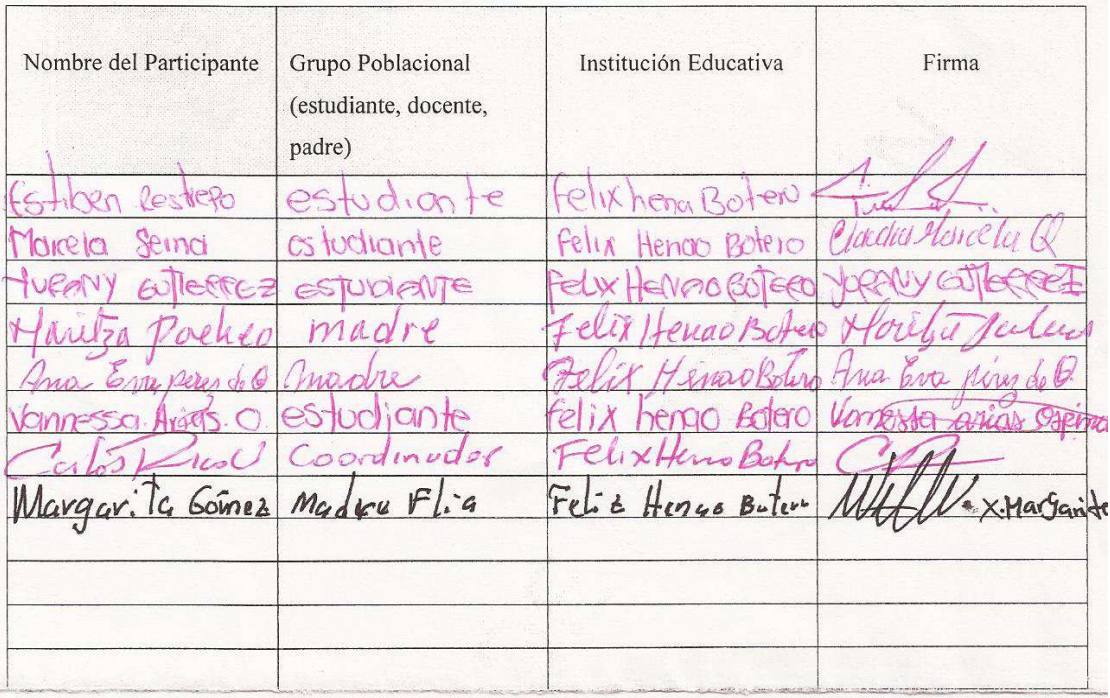 Nombre del Participante Grupo Poblacional Institución Educativa Firma
(estudiante, docente,
padre)
Estiben Restrepo estudiante Felix hena Botero
Marcela Serna estudiante Felix Henao Botero Claudia Marcela Q
YURANY GUTIERREZ ESTUDIANTE Felix HENAO BOTERO YURANY GUTIERREZ
Maritza Pacheco madre Felix Henao Botero Maritza
Ana Eva perez de Q madre Felix Henao Botero Ana Eva pérez de Q.
Vannessa. Arias. O estudiante felix henao Botero Vanessa arias Ospina
Carlos Coordinador Felix Henao Botero
Margarita Gómez Madre Flia Feliz Henao Botero X.Margarita